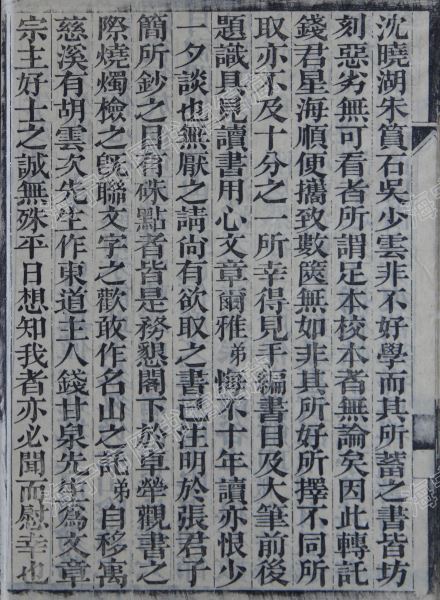 沈曉湖朱篔石吳少雲非不好學而其所蓄之書皆坊
刻惡劣無可看者所謂足本校本者無論矣因此轉託
錢君星海順便攜致數篋無如非其所好所擇不同所
取亦不及十分之一所幸得見手編書目及大筆前後
題識具見讀書用心文章爾雅弟悔不十年讀亦恨少
一夕談也無厭之請尙有欲取之書已注明於張君子
簡所鈔之目有硃點者皆是務懇閣下於卓犖觀書之
際燒燭檢之旣聯文字之歡敢作名山之託弟自移寓
慈溪有胡雲次先生作東道主人錢甘泉先生爲文章
宗主好士之誠無殊平日想知我者亦必聞而慰幸也